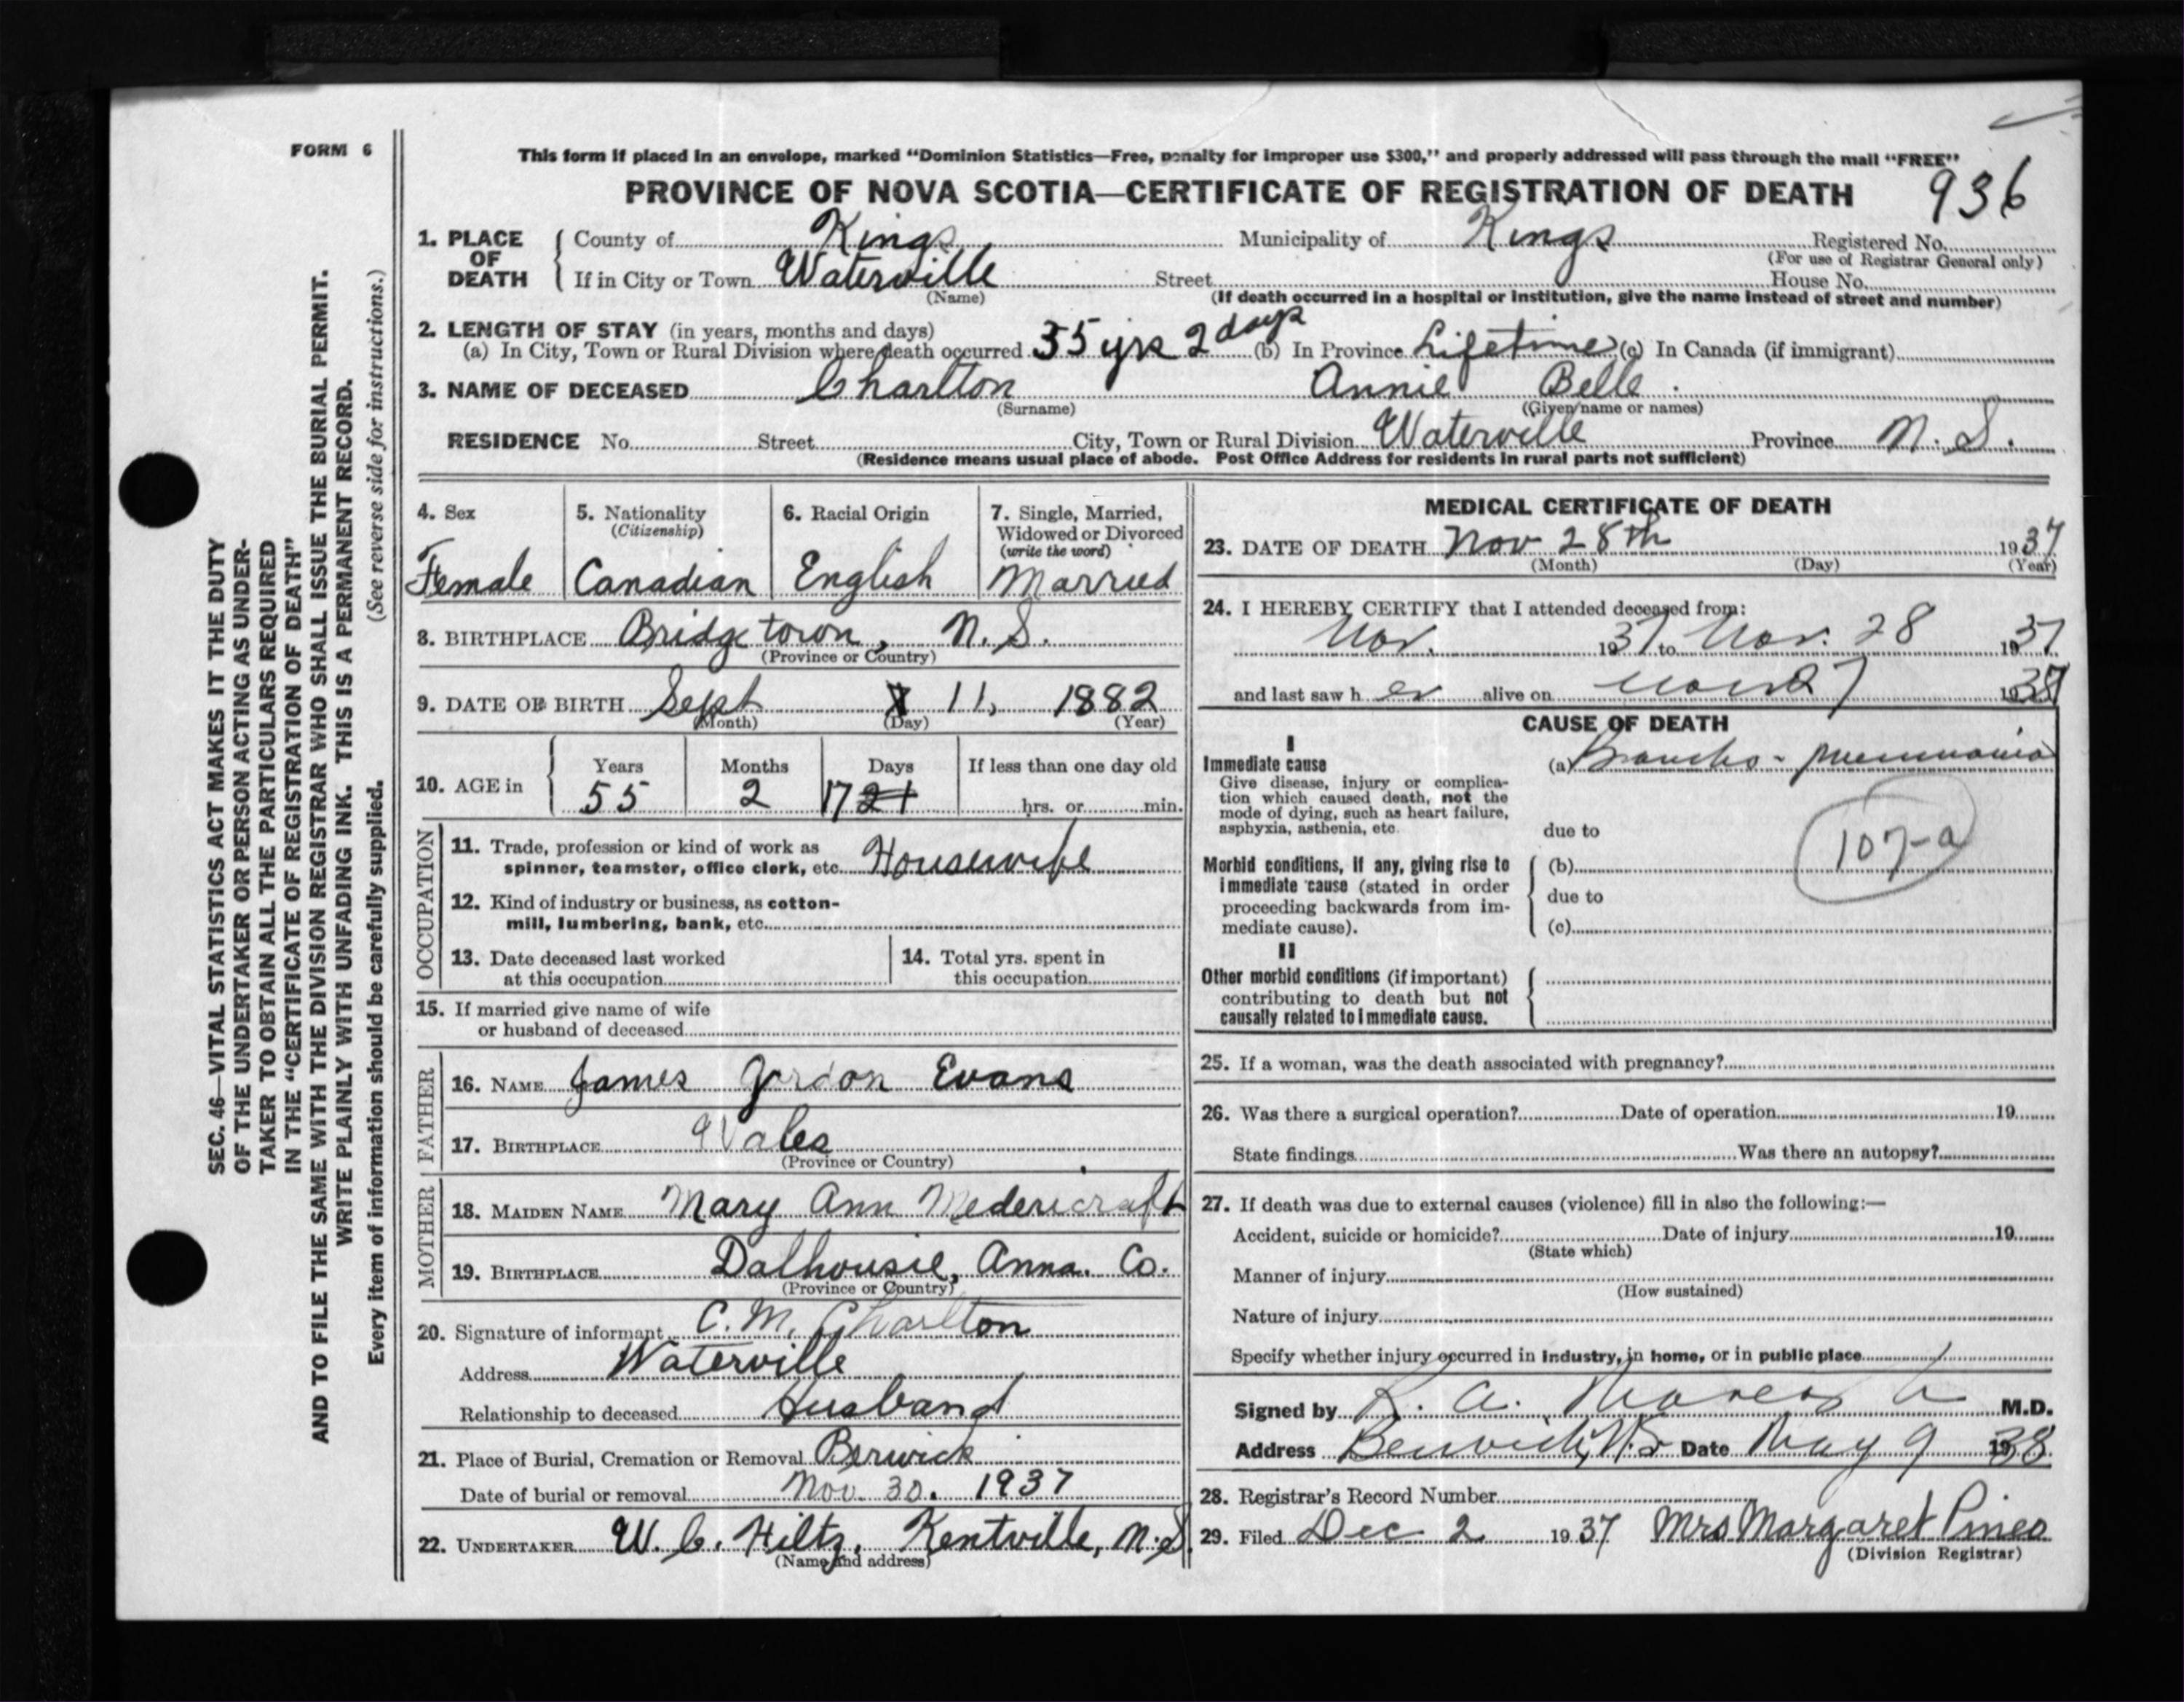 FORM 6
This form if placed in an envelope, marked "Dominion Statistics—Free, penalty for improper use $300," and properly addressed will pass through the mail "FREE"
PROVINCE OF NOVA SCOTIA—CERTIFICATE OF REGISTRATION OF DEATH 936
1. PLACE OF DEATH County of Kings Municipality of Kings Registered No.
(For use of Registrar General only)
If in City or Town Waterville Street House No.
(Name) (If death occurred in a hospital or institution, give the name instead of street and number)
2. LENGTH OF STAY (in years, months and days)
(a) In City, Town or Rural Division where death occurred 35 yrs 2 days (b) In Province Lifetime (c) In Canada (if immigrant)
3. NAME OF DECEASED Charlton Annie Belle
(Surname) (Given name or names)
RESIDENCE No. Street City, Town or Rural Division Waterville Province N. S.
(Residence means usual place of abode. Post Office Address for residents in rural parts not sufficient)
4. Sex Female
5. Nationality (Citizenship) Canadian
6. Racial Origin English
7. Single, Married, Widowed or Divorced (write the word) Married
8. BIRTHPLACE Bridgetown, N. S.
(Province or Country)
9. DATE OF BIRTH Sept 11, 1882
(Month) (Day) (Year)
10. AGE in Years 55 Months 2 Days 17 21 If less than one day old hrs. or min.
OCCUPATION
11. Trade, profession or kind of work as
spinner, teamster, office clerk, etc. Housewife
12. Kind of industry or business, as cotton-
mill, lumbering, bank, etc.
13. Date deceased last worked
at this occupation
14. Total yrs. spent in
this occupation
15. If married give name of wife
or husband of deceased
FATHER
16. NAME James Gordon Evans
17. BIRTHPLACE Wales
(Province or Country)
MOTHER
18. MAIDEN NAME Mary Ann Medericraft
19. BIRTHPLACE Dalhousie, Anna. Co.
(Province or Country)
20. Signature of informant C. M. Charlton
Address Waterville
Relationship to deceased Husband
21. Place of Burial, Cremation or Removal Berwick
Date of burial or removal Nov. 30. 1937
22. UNDERTAKER W. C. Hiltz, Kentville, N.S.
(Name and address)
MEDICAL CERTIFICATE OF DEATH
23. DATE OF DEATH Nov 28th 1937
(Month) (Day) (Year)
24. I HEREBY CERTIFY that I attended deceased from:
Nov. 1937 to Nov. 28 1937
and last saw h er alive on Nov 27 1937
CAUSE OF DEATH
I
Immediate cause (a) Broncho-pneumonia
Give disease, injury or complica-
tion which caused death, not the
mode of dying, such as heart failure,
asphyxia, asthenia, etc.
due to
107-a
Morbid conditions, if any, giving rise to (b)
immediate cause (stated in order
proceeding backwards from im- due to
mediate cause). (c)
II
Other morbid conditions (if important)
contributing to death but not
causally related to immediate cause.
25. If a woman, was the death associated with pregnancy?
26. Was there a surgical operation? Date of operation 19
State findings Was there an autopsy?
27. If death was due to external causes (violence) fill in also the following:—
Accident, suicide or homicide? Date of injury 19
(State which)
Manner of injury
(How sustained)
Nature of injury
Specify whether injury occurred in industry, in home, or in public place
Signed by R. A. M.D.
Address Berwick, N.S Date May 9 1938
28. Registrar's Record Number
29. Filed Dec 2 1937 Mrs Margaret Pineo
(Division Registrar)
SEC. 46—VITAL STATISTICS ACT MAKES IT THE DUTY
OF THE UNDERTAKER OR PERSON ACTING AS UNDER-
TAKER TO OBTAIN ALL THE PARTICULARS REQUIRED
IN THE "CERTIFICATE OF REGISTRATION OF DEATH"
AND TO FILE THE SAME WITH THE DIVISION REGISTRAR WHO SHALL ISSUE THE BURIAL PERMIT.
WRITE PLAINLY WITH UNFADING INK. THIS IS A PERMANENT RECORD.
Every item of information should be carefully supplied. (See reverse side for instructions.)